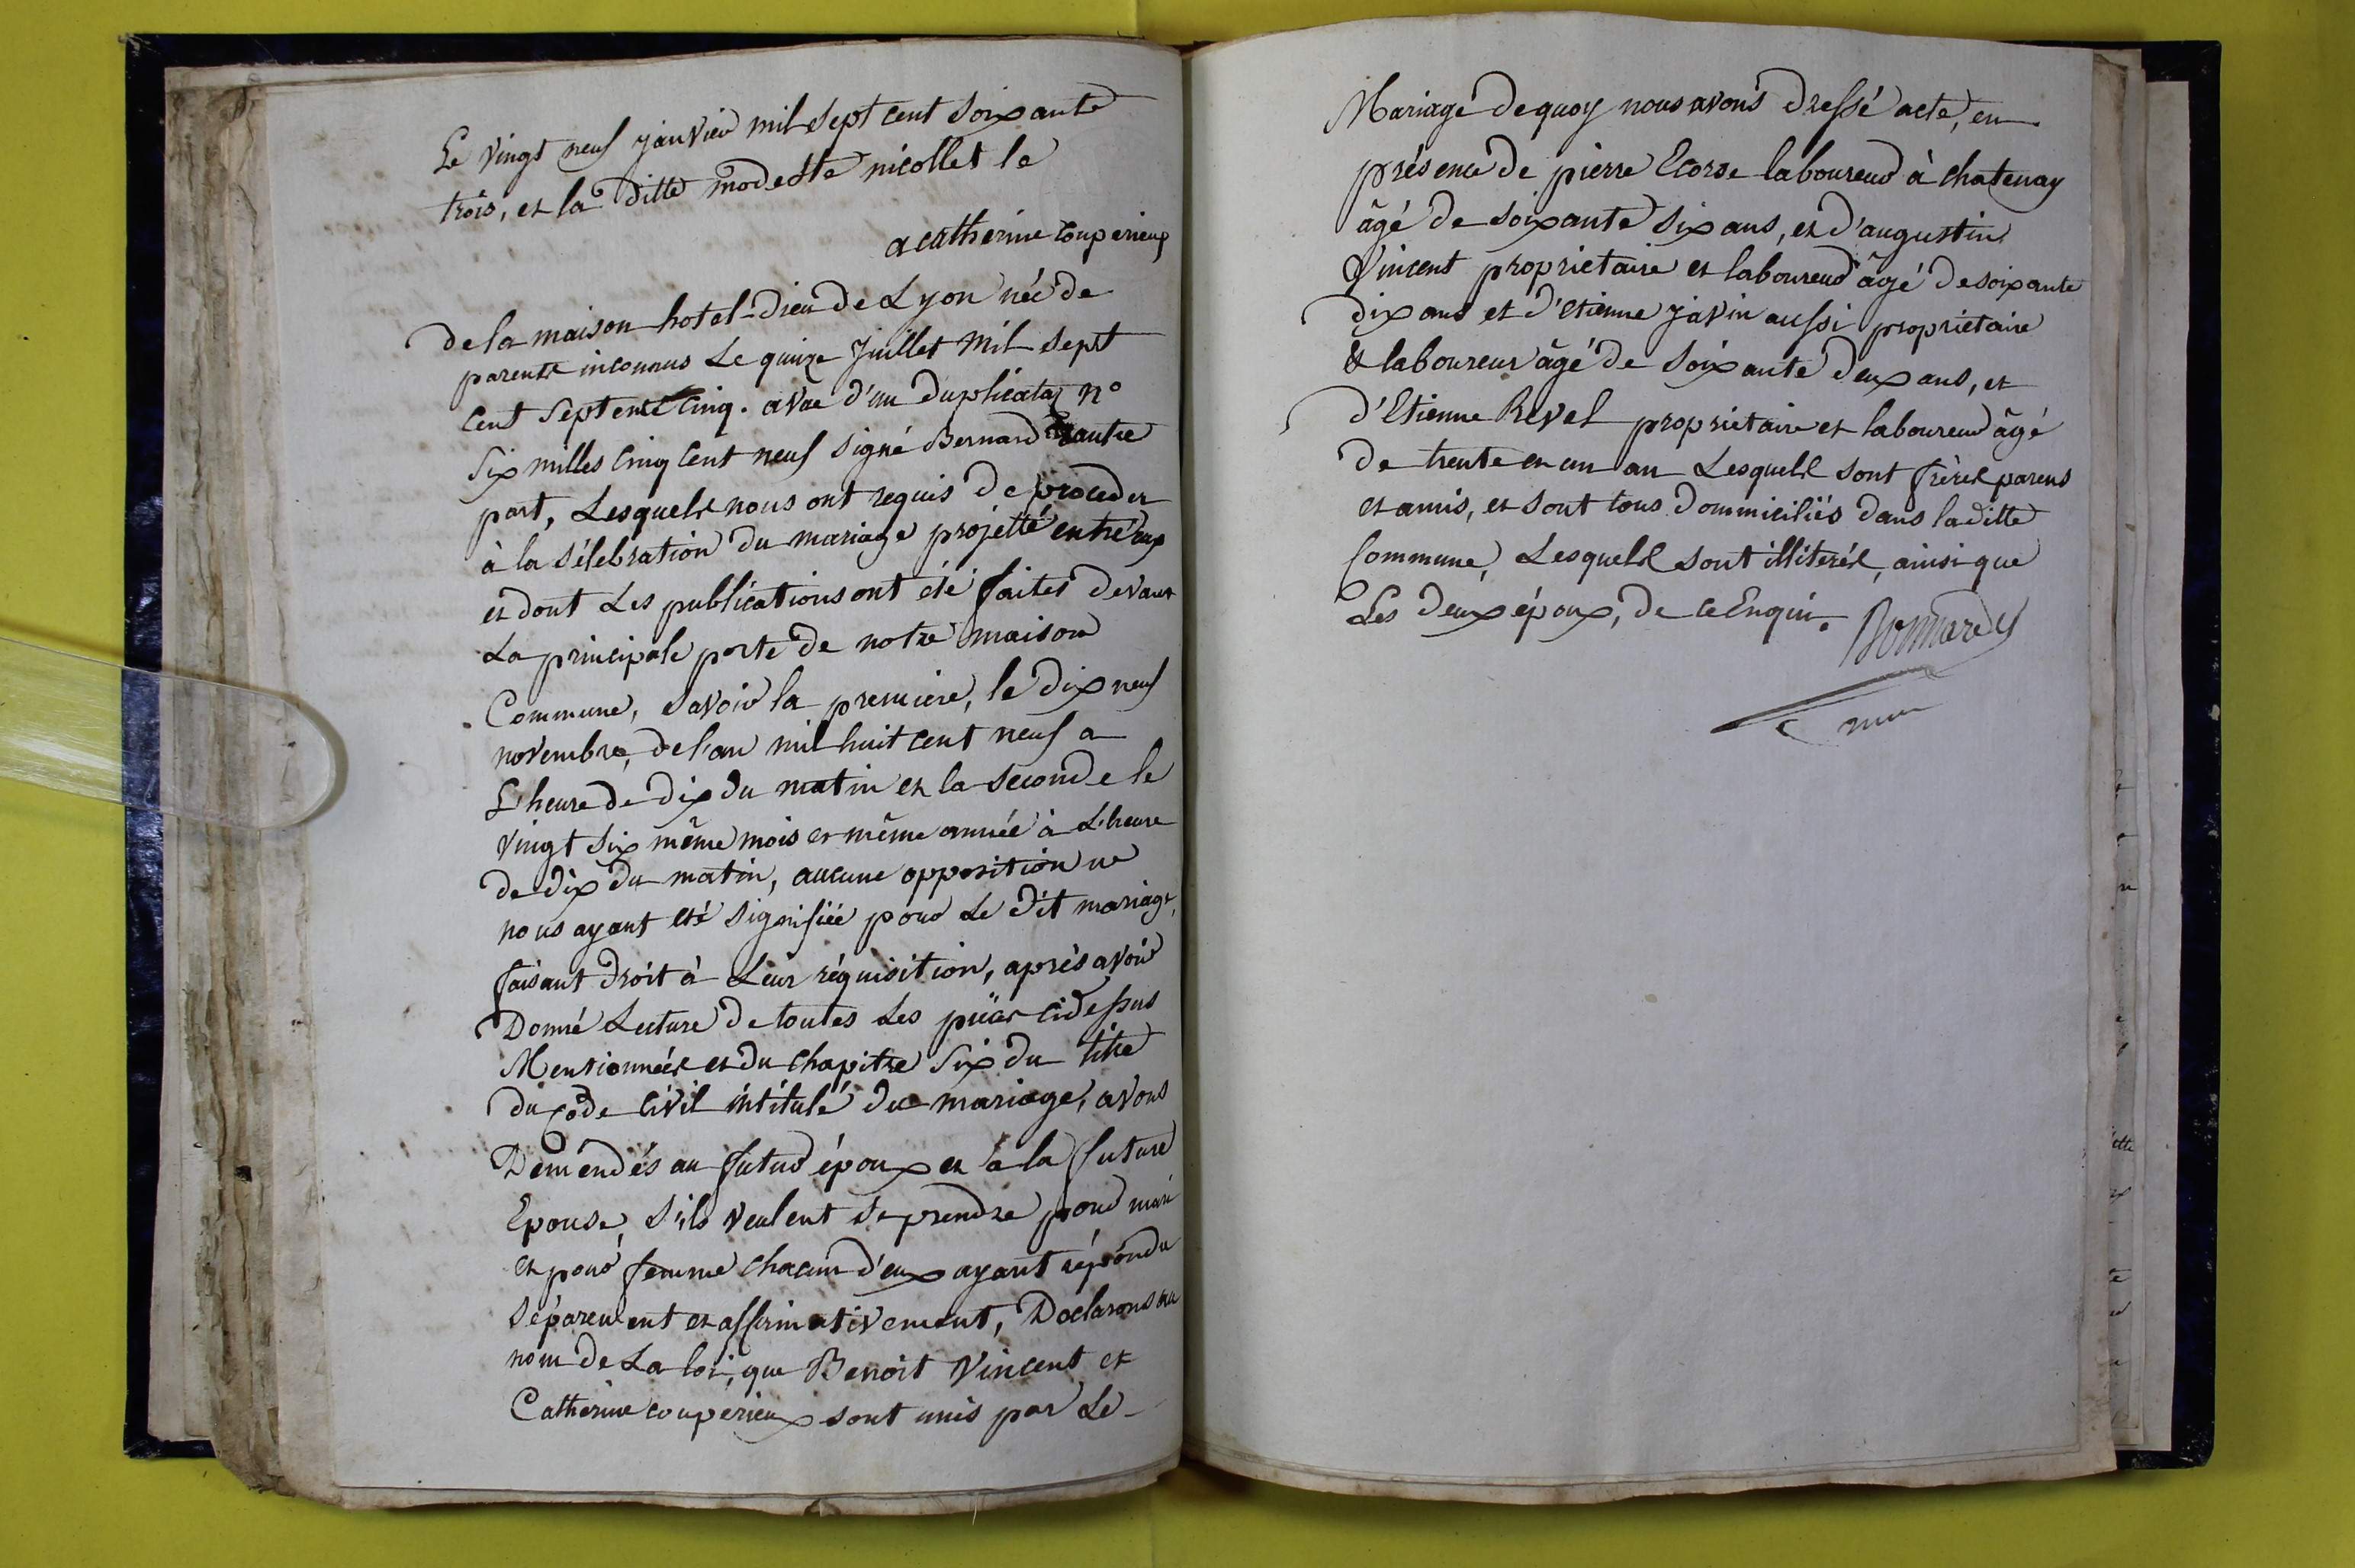 Le vingt neuf janvier mil sept cent soixante
trois, et la ditte modeste nicollet le
a catherine couperieux
de la maison hotel-Dieu de Lyon née de
parents inconnus Le quinze Juillet mil sept
cent septente cinq. avec d'un Duplicata n°
six milles cinq cent neuf signé Bernard d'autre
part, Lesquels nous ont requis de proceder
à la célebration du mariage projetté entré eux
et dont Les publications ont été faites devant
La principale porte de notre maison
Commune, savoir la premiere, le dix neuf
novembre, de l'an mil huit cent neuf a
L'heure de dix du matin et la seconde le
vingt six même mois et même année à L'heure
de dix du matin, aucune opposition ne
nous ayant été signifiée pour Le dit mariage,
faisant droit à Leur réquisition, après avoir
Donné Lecture de toutes Les pièces cidessus
Mentionnées et du chapitre six du titre
du code civil intitulé du mariage, avons
Demendés au futur époux et à la future
Epouse, s'ils veulent se prendre pour mari
et pour femme chacun d'eux ayant répondu
séparement et affirmativement, Declarons au
nom de La loi, que Benoit Vincent et
Catherine couperieux sont unis par Le
Mariage de quoy nous avons dressé acte, en
présence de pierre Ecorse laboureur à chatenay
âgé de soixante six ans, et d'augustin
Vincent proprietaire et laboureur âgé de soixante
dix ans et d'etienne javin aussi proprietaire
& laboureur âgé de soixante deux ans, et
d'Etienne Revel proprietaire et laboureur âgé
de trente et un an Lesquels sont frères parens
et amis, et sont tous dommiciliés dans laditte
Commune, Lesquels sont illiterés, ainsi que
Les deux époux, de ce Enquis. Bonnardel